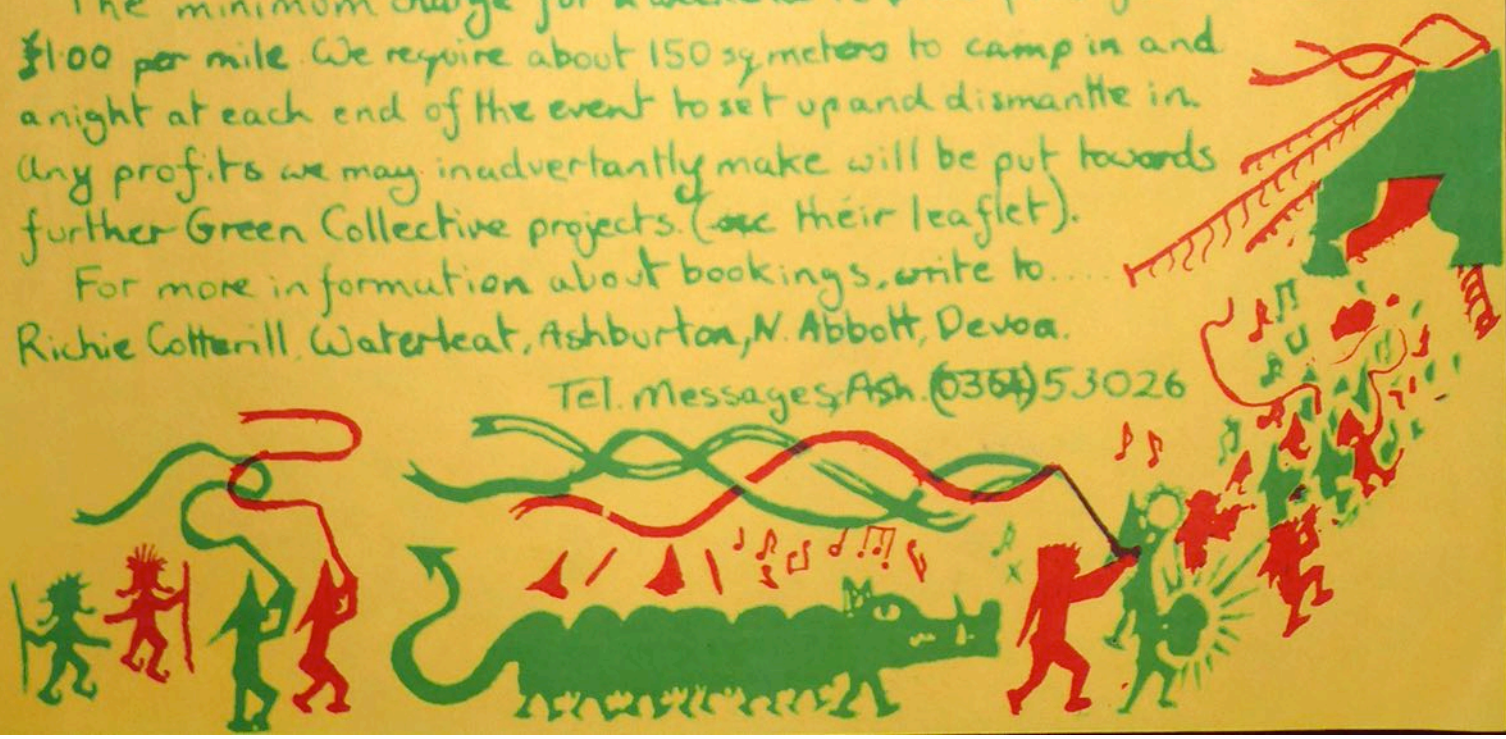 The minimum charge for a
£1.00 per mile. We require about 150 sq meters to camp in and
a night at each end of the event to set up and dismantle in.
Any profits we may inadvertantly make will be put towards
further Green Collective projects. (see their leaflet).
For more information about bookings, write to....
Richie Cotterill, Waterleat, Ashburton, N. Abbott, Devon.
Tel. Messages, Ash. (0364) 53026